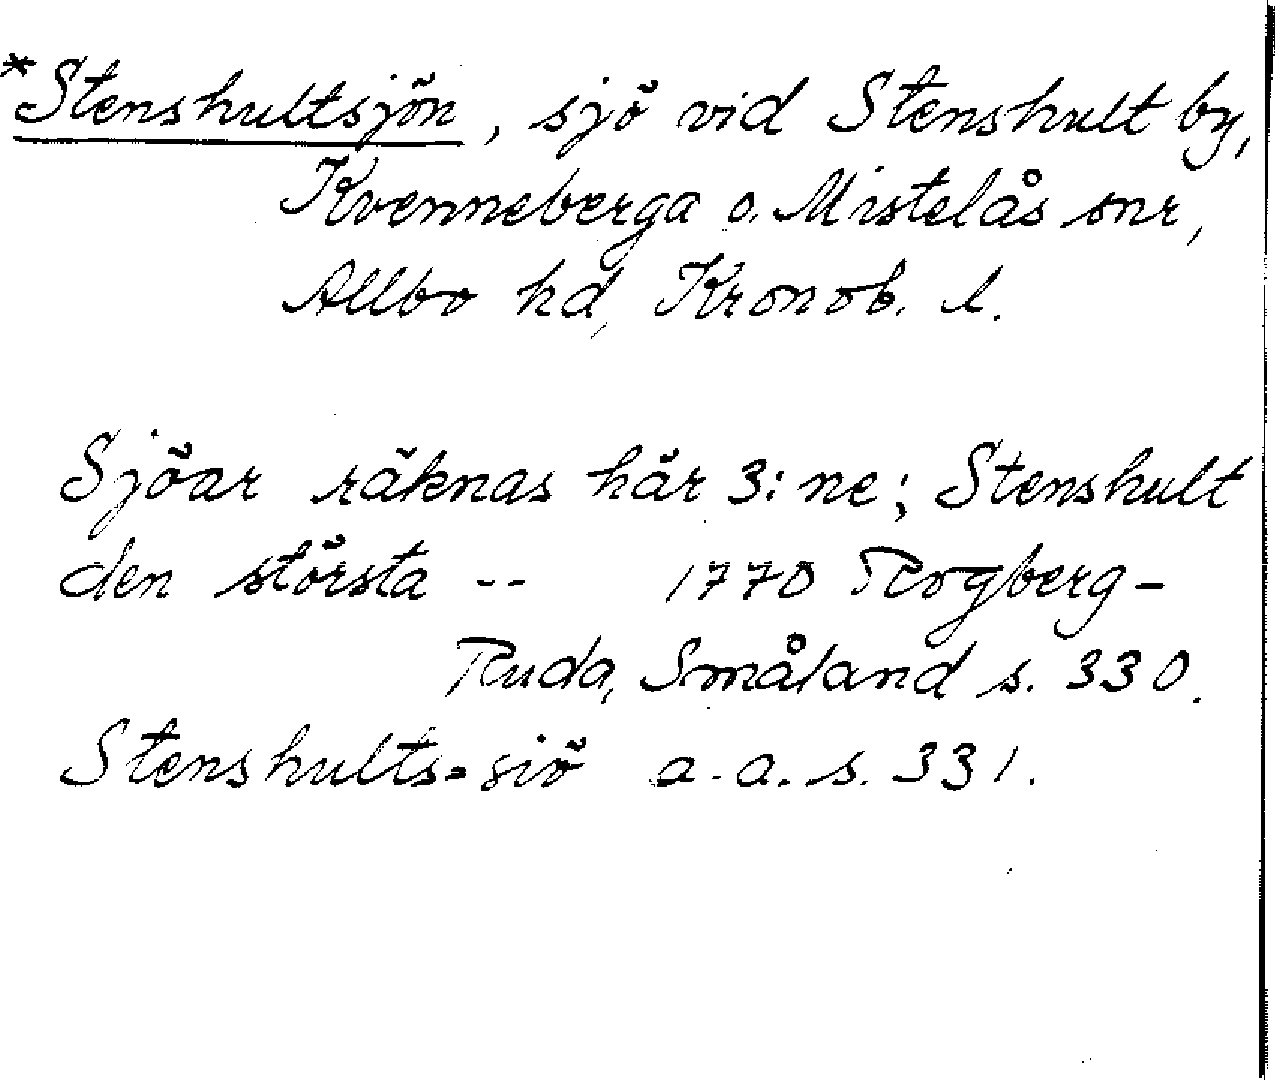 *Stenshultsjön, sjö vid Stenshult by,
Kvenneberga o. Mistelås snr,
Allbo hd, Kronob. l.
Sjöar räknas här 3:ne; Stenshult
den största -- 1770 Rogberg-
Ruda, Småland s. 330.
Stenshults=siö a.a. s. 331.